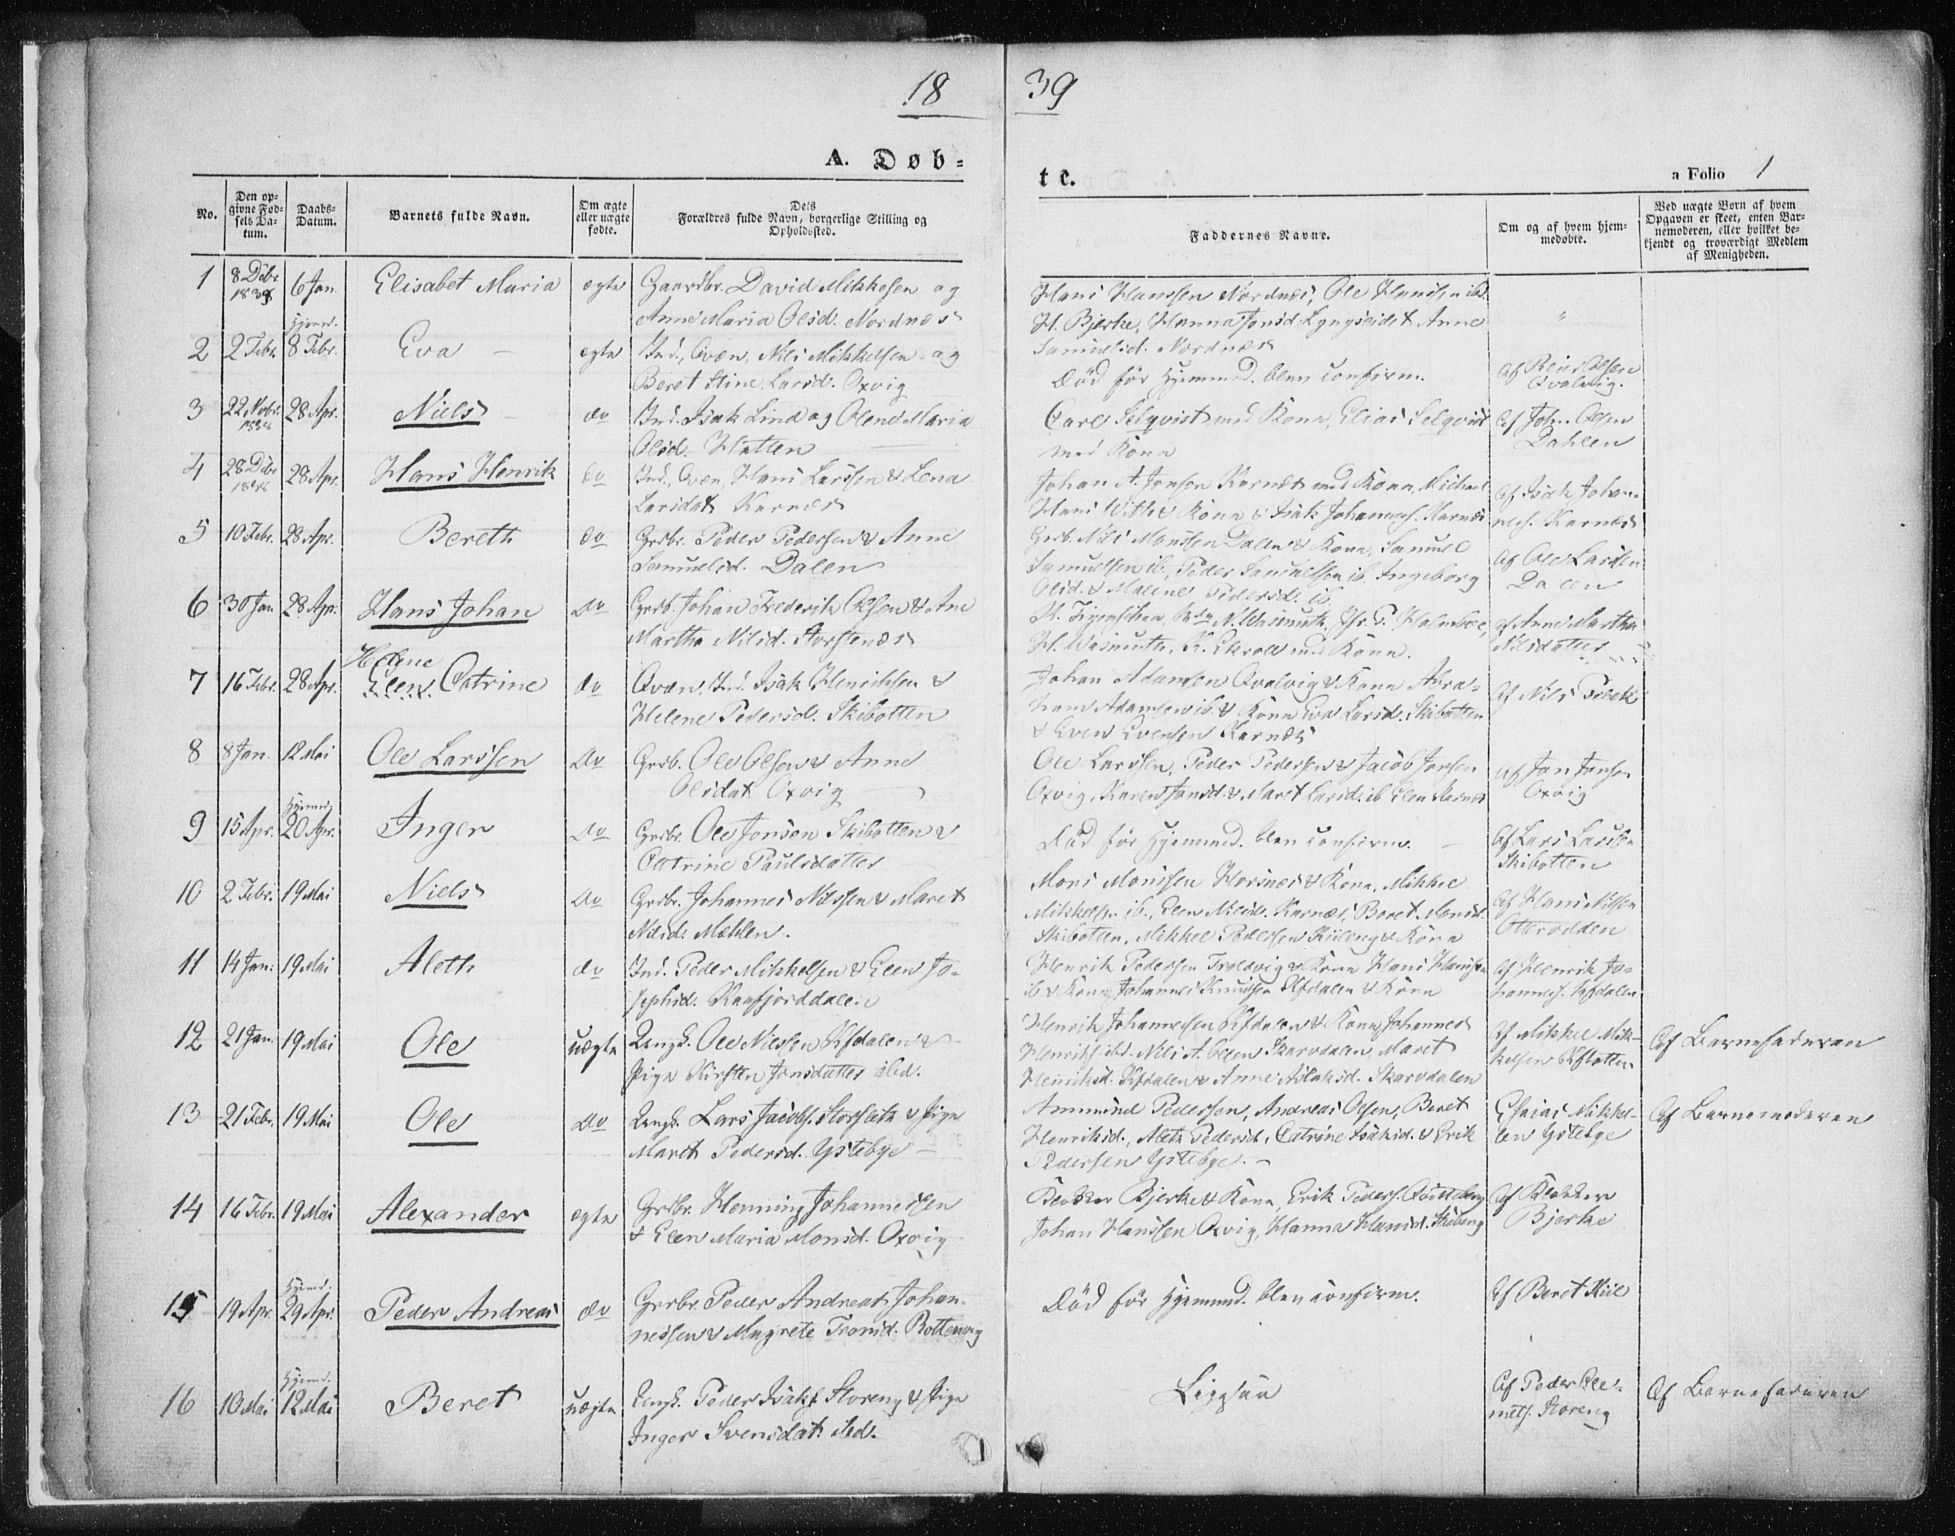 18 39
A. Døb-
te.
a Folio 1
No.
Den op-
givne Fød-
sels Da-
tum.
Daabs-
Datum.
Barnets fulde Navn.
Om ægte
eller uægte
fødte.
Dets
Forældres fulde Navn, borgerlige Stilling og
Opholdssted.
Faddernes Navne.
Om og af hvem hjem-
medøbte.
Ved uægte Børn af hvem
Opgaven er skeet, enten Bar-
nemoderen, eller hvilket be-
kjendt og troværdigt Medlem
af Menigheden.
1 8 Dcbr 6 Jan Elisabet Maria ægte Gaardbr. David Mikkelsen og
Anne Maria Olsd. Nordnæs
Hans Hanssen Nordnæs, Ole Hanssen ibd.
H. Bjerke, Hanna Jonsd. Lyngseidet Anne
Samuelsd. Nordnæs
2 2 Febr. Hjemd. 8 Febr. Eva ægte Ind., Qvæn, Nils Mikkelsen og
Beret Stine Larsd. Oxvig
Død før Hjemmed. blev confirm.
3 22 Novbr. 28 Apr. Niels do Ind. Isak Lind og Olena Maria
Olsd. Hatten
Carl Selqvist med Kone, Elias Selqvist
med Kone
Af John Olsen
Dahlen
4 28 Dcbr 28 Apr. Hans Henrik do Ind., Qvæn, Hans Larssen & Lena
Larsdat Karnæs
Johan A. Jonsen Karnæs med Kone, Michael
Hans With & Kone & Isak Johannes. Karnæs
Af Isak Johan-
nes. Karnæs
5 10 Febr. 28 Apr. Bereth do Grdbr. Peder Pedersen & Anne
Samuelsd. Dalen
Grdb. Nils Monssen Dalen & Kone, Samuel
Samuelsen ib., Peder Samuelssen ib. Ingeborg
Olsd. & Malene Pedersd. ib.
Af Ole Larsen
Dalen
6 30 Jan 28 Apr. Hans Johan do Grdb. Johan Frederik Olsen & Ane
Martha Nilsd. Storstenæs
H. Wasmuth, K. Ekroll med Kone.
af Anne Martha
Nilsdatter
7 16 Febr. 28 Apr. Helene
Elen Catrine do Qvæn, Ind. Isak Henrichsen &
Helene Pedersd. Skibotten
Johan Adamsen Qvalvig & Kone Abra-
ham Adamsen ib. & Kone Eva Larsd. Skibotten
& Even Evensen Karnæs
Af Nils
8 8 Jan. 12 Mai Ole Larssen do Grdb. Ole Olsen & Anne
Olsdat. Oxvig
Ole Larssen, Peder Pedersen & Jacob Jonsen
Oxvig, Karen Jonsd. & Maret Larsd. ib Elen Karnæs
Af Jon Jonsen
Oxvig
9 15 Apr. Hjemd. 20 Apr. Inger do Grdbr. Ole Jonsen Skibotten &
Cattrine Paulsdatter
Død før Hjemmed. blev confirm.
Af Lars Larsen
Skibotten
10 2 Febr. 19 Mai Niels do Grdbr. Johannes Nilssen & Maret
Nilsd. Mælen.
Mons Monssen Horsnæs & Kone, Mikkel
Mikkelsen ib., Elen Nilsd. Karnæs, Beret Monsd.
Skibotten, Mikkel Pedersen & Kone
Af Hans Nilsen
Otterodden
11 14 Jan. 19 Mai Aleth do Ind. Peder Mikkelsen & Elen Jo-
sephsd. Kaafjorddalen
Henrik Pedersen Troldvig & Kone Hans Hanssen
ib & Kone, Johannes Knudsen Kfdalen & Kone
Af Henrik Jo-
hannes. Kfdalen
12 21 Jan. 19 Mai Ole uægte Ungk. Ole Nilssen Kfdalen &
Pige Kirsten Jonsdatter ibid.
Henrik Johannesen Kfdalen & Kone, Johannes
Henriks. ibd. Nils A. Olsen Skarvdalen, Maret
Henriksd. Kfdalen & Anne Aslaksd. Skarvdalen
Af Mikkel Mik-
kelsen Kfbotten
Af Barnefaderen
13 21 Febr. 19 Mai Ole do Ungk. Lars Jacobs. Storslett & Pige
Maret Pedersd. Ystebye
Ammund Pedersen, Andreas Olsen, Beret
Henriksd., Aleth Pedersd., Catrine Isaksd. & Erik
Pedersen Ystebye.
Esaias Mikkel-
sen Ystebye
Af Barnemoderen
14 16 Febr. 19 Mai Alexander ægte Grdbr. Henning Johannessen
& Elen Maria Monsd. Oxvig
Klokker Bjerke & Kone, Erik Peders.
Johan Hanssen Oxvig, Hanna Hansd.
Af Klokker
Bjerke
15 19 Apr. Hjemd. 29 Apr. Peder Andreas do Grdbr. Peder Andreas Johan-
nessen & Magrete Tronsd. Rottenvig
Død før Hjemmed. blev confirm.
Af Beret Kiil
16 10 Mai Hjemd. 12 Mai Beret uægte Ungk. Peder Isaks. Storeng & Pige
Inger Svensdat. ibid.
Ligesaa
Af Peder Cle-
mets. Storeng
Af Barnefaderen
1